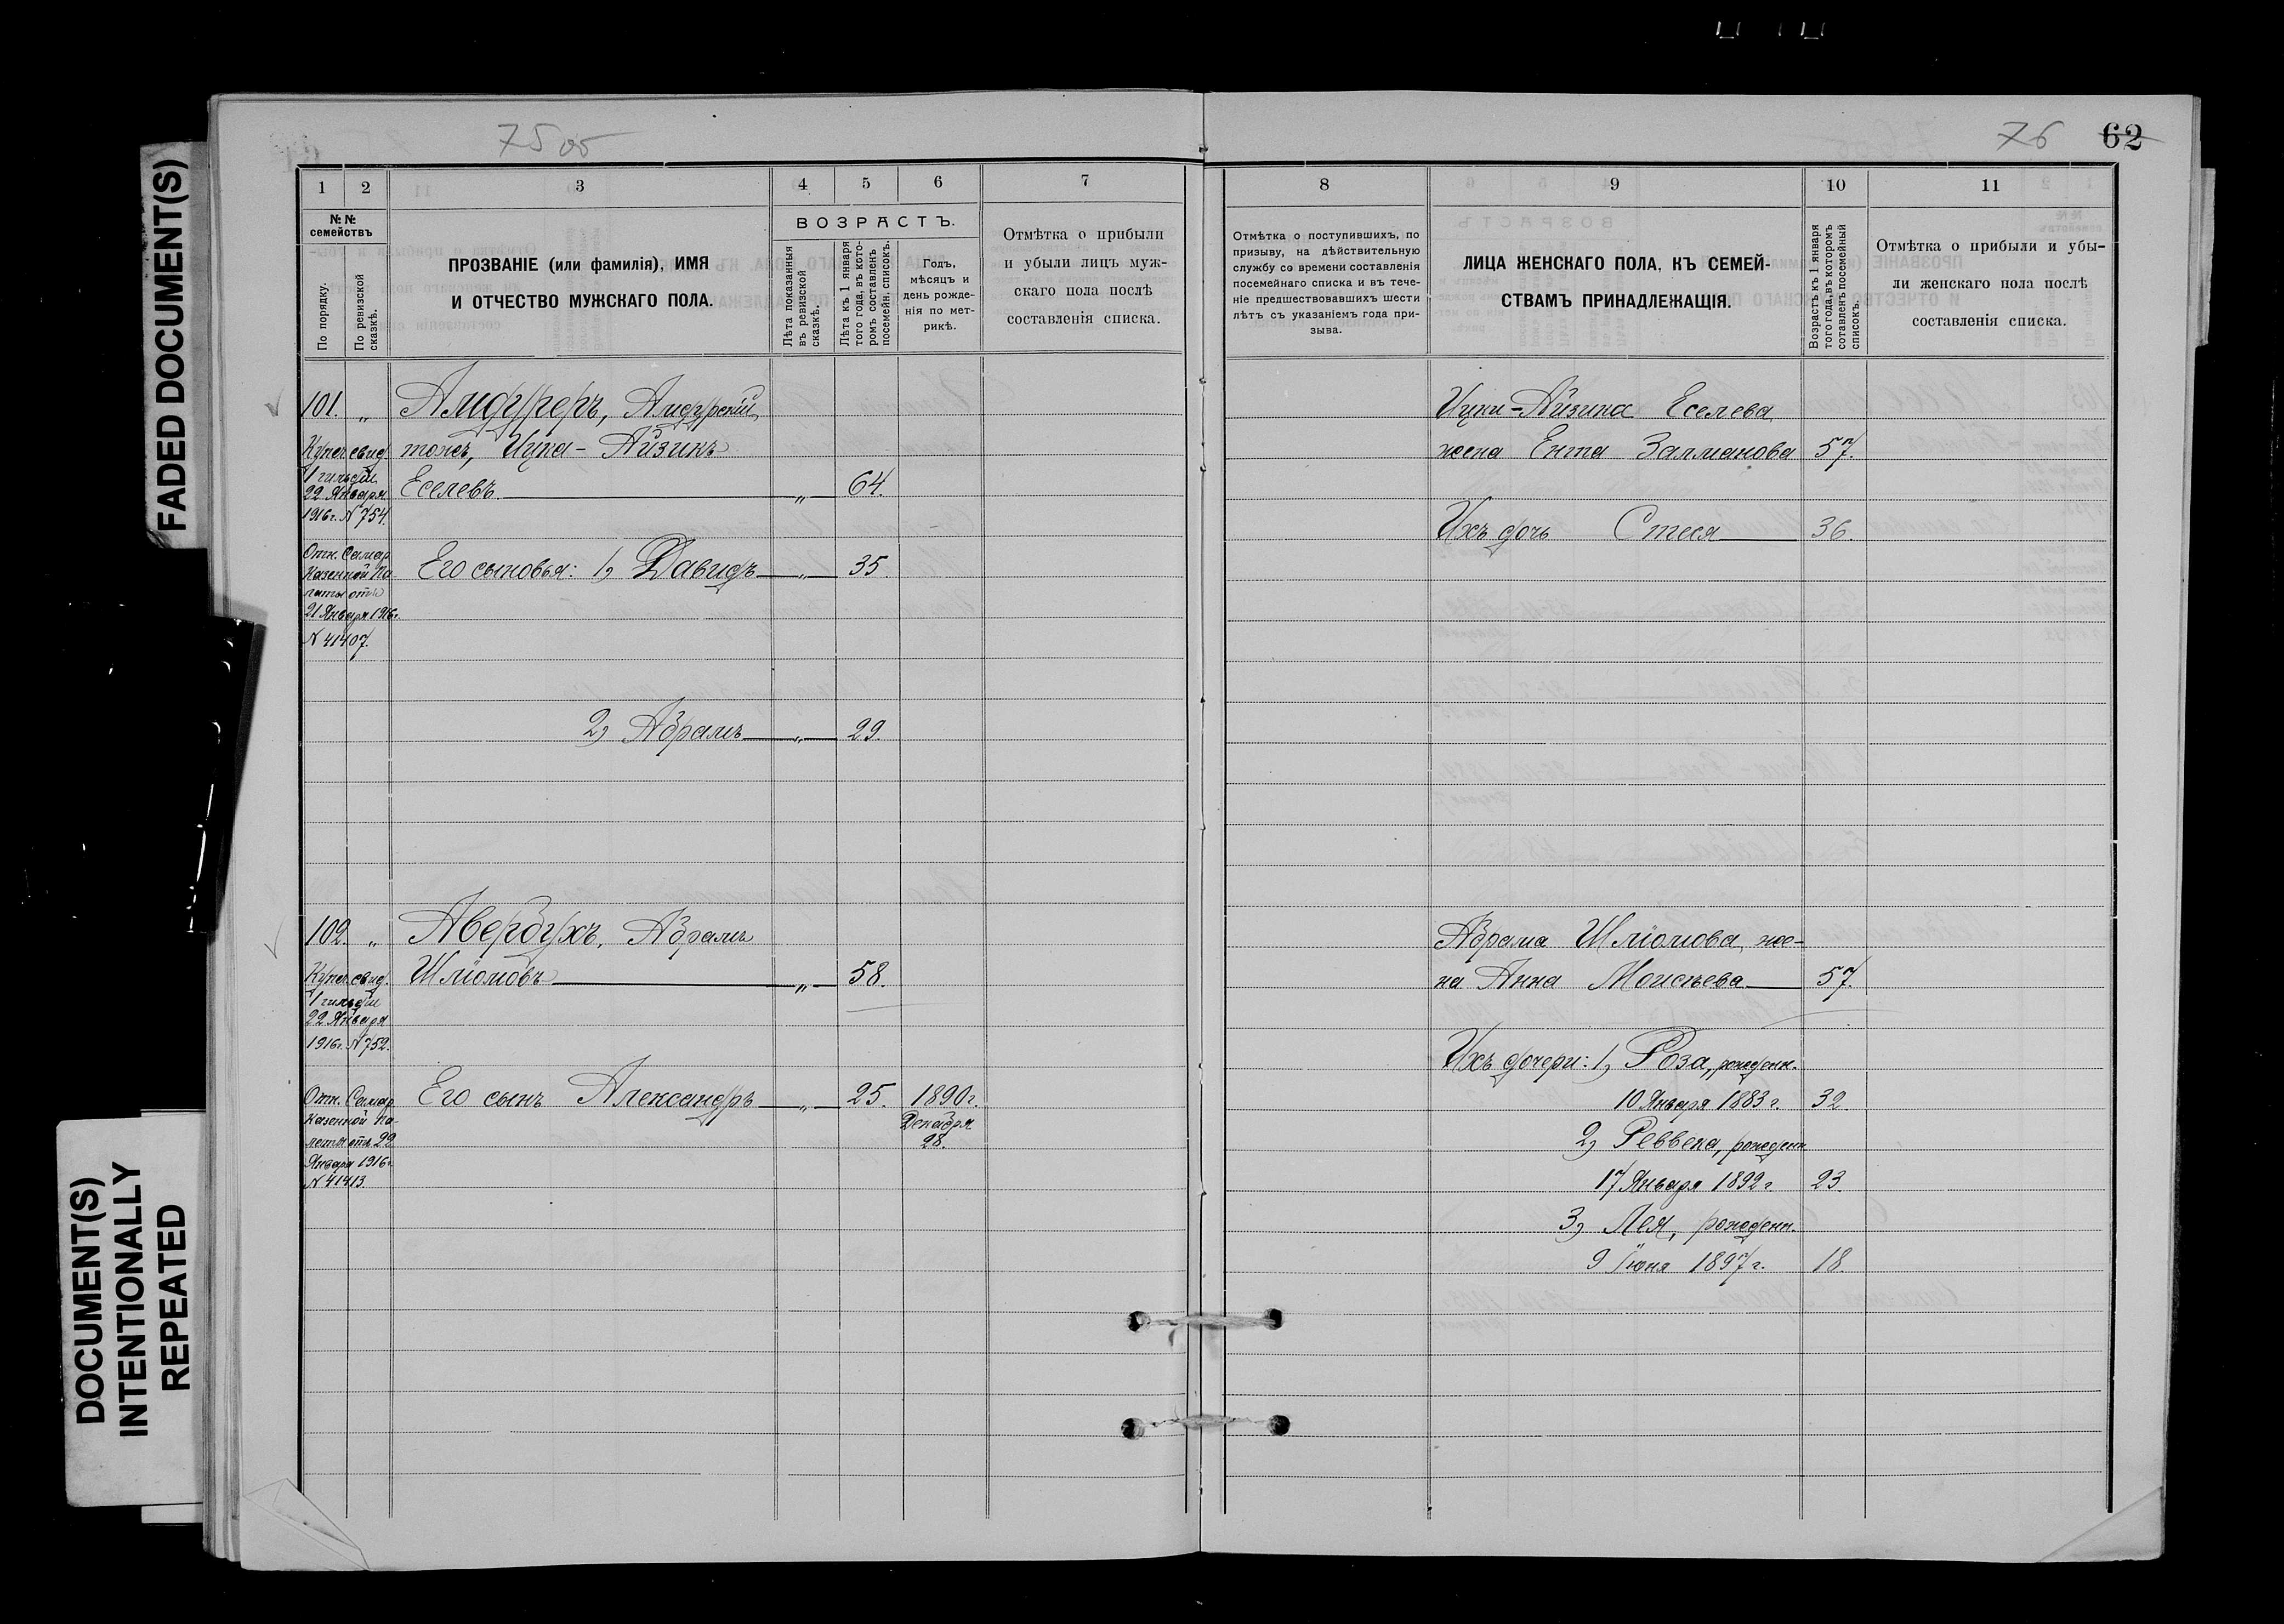 FADED DOCUMENT(S)
DOCUMENT(S)
INTENTIONALLY
REPEATED
75 об
1 2 3 4 5 6 7
№ №
семействъ
По порядку.
По ревизской
сказкѣ.
ПРОЗВАНІЕ (или фамилія), ИМЯ
И ОТЧЕСТВО МУЖСКАГО ПОЛА.
ВОЗРАСТЪ.
Лѣта показанныя
въ ревизской
сказкѣ.
Лѣта къ 1 января
того года, въ кото-
ромъ составленъ
посемейн. списокъ.
Годъ,
мѣсяцъ и
день рожде-
нія по мет-
рикѣ.
Отмѣтка о прибыли
и убыли лицъ муж-
скаго пола послѣ
составленія списка.
101. „
Купеч. свид.
1 гильдіи
22 Января
1916 г. № 754.
Отн. Самар.
Казенной Па-
латы отъ
21 Января 1916 г.
№ 41407.
тожъ, Ицка-Айзикъ
Еселевъ „ 64.
Его сыновья: 1, Давидъ „ 35.
2, Абрамъ „ 29.
102. „ Авербухъ, Абрамъ
Шліомовъ „ 58.
Купеч. свид.
1 гильдіи
22 Января
1916 г. № 752.
Отн. Самар.
Казенной Па-
латы отъ 22
Января 1916 г.
№ 41413.
Его сынъ Александръ „ 25. 1890 г.
Декабря
28.
76 62
8 9 10 11
Отмѣтка о поступившихъ, по
призыву, на дѣйствительную
службу со времени составленія
посемейнаго списка и въ тече-
ніе предшествовавшихъ шести
лѣтъ съ указаніемъ года при-
зыва.
ЛИЦА ЖЕНСКАГО ПОЛА, КЪ СЕМЕЙ-
СТВАМЪ ПРИНАДЛЕЖАЩІЯ.
Возрастъ къ 1 января
того года, въ которомъ
составленъ посемейный
списокъ.
Отмѣтка о прибыли и убы-
ли женскаго пола послѣ
составленія списка.
Ицки-Айзика Еселева
жена Ента Залманова 57.
Ихъ дочь Стеся 36.
Абрама Шліомова же-
на Анна Моисѣева 57.
Ихъ дочери: 1, Роза, рожденн.
10 Января 1883 г. 32.
2, Реввека, рожденн.
17 Января 1892 г. 23.
3, Лея, рожденн.
9 Іюня 1897 г. 18.